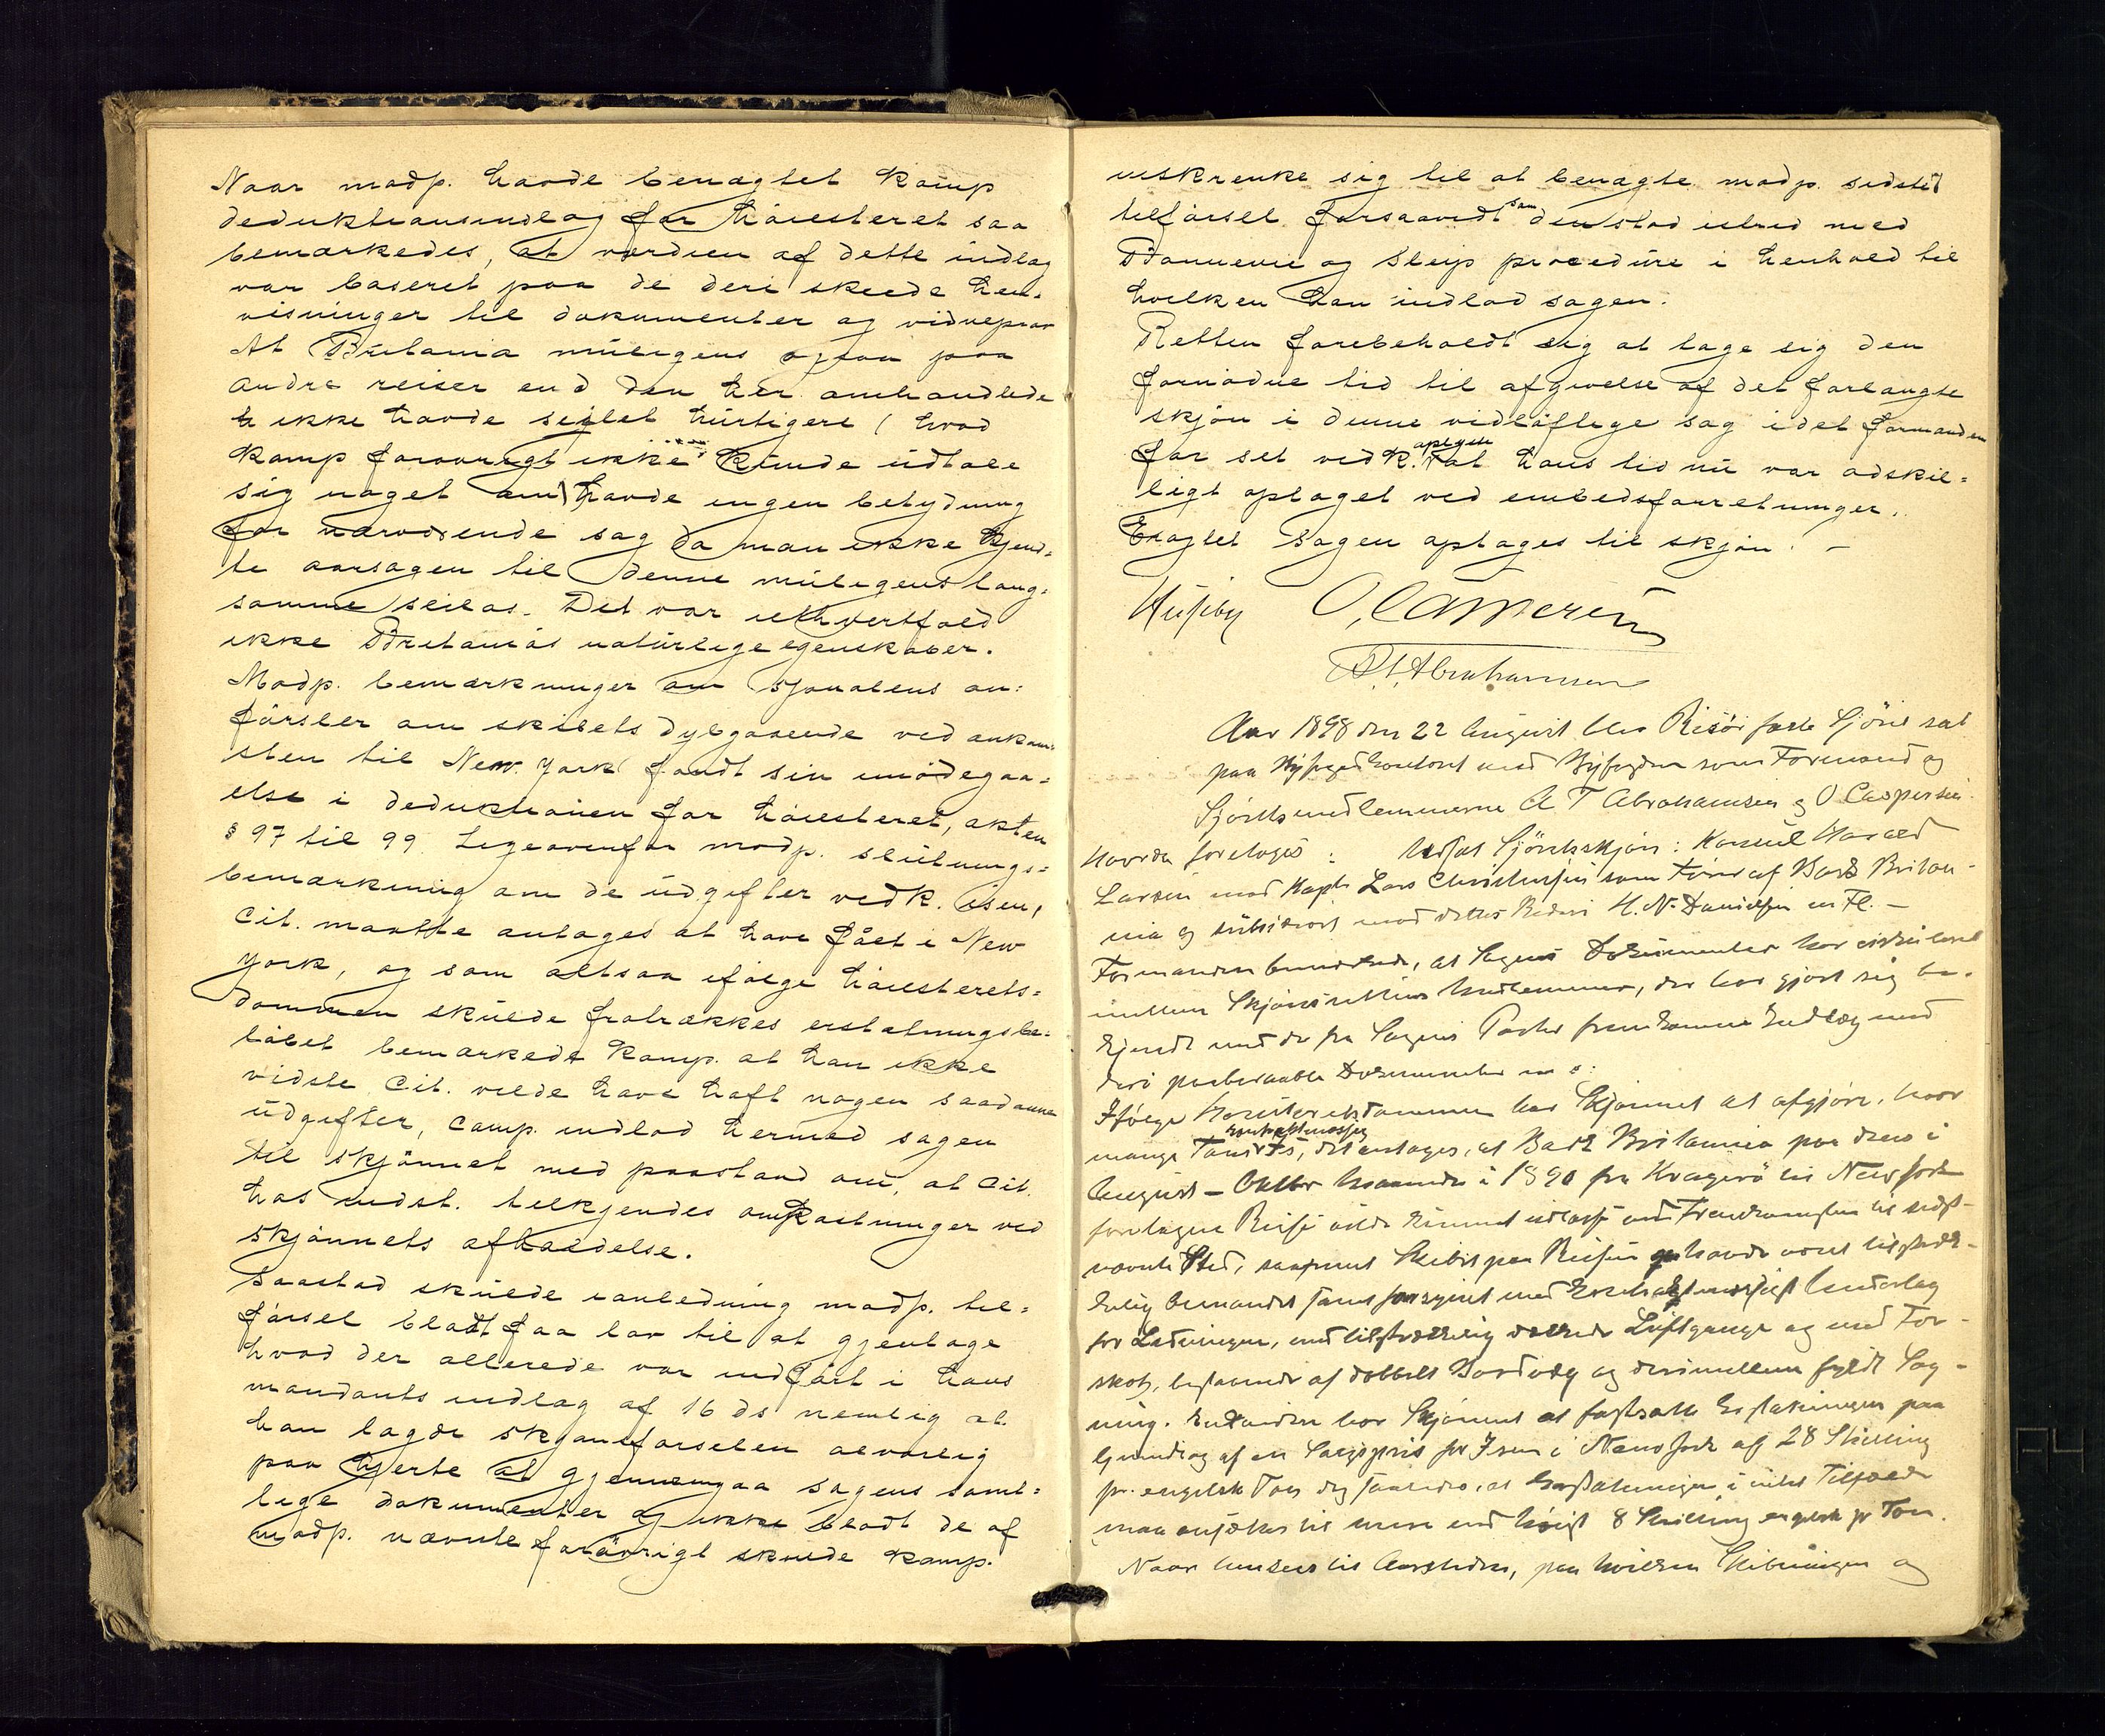 Naar modp. havde benægtet Kamp
deduktionsindlæg for høiesteret saa
bemærkedes, at værdien af dette indlæg
var baseret paa de deri skeede hen-
visninger til dokumenter og vidneprov
At Britania muligens ogsaa paa
andre reiser end den her omhandlede
ikke havde seglet hurtigere (hvad
Kamp forøvrigt ikke kunde udtale
sig noget om) havde ingen betydning
for nærværende sag da man ikke kjend-
te aarsagen til denne muligens lang-
somme seilas. Det var ialhvertfald
ikke Britanias naturlige egenskaber.
Modp. bemærkninger om Sjonalens an-
førsler om skibets dybgaaende ved ankom-
sten til New York fandt sin imødegaa-
else i deduktionen for høiesteret, akten
§ 97 til 99. Ligeovenfor modp. slutnings-
bemærkning om de udgifter vedk. isen,
Cit. maatte antages at have fået i New
York, og som altsaa ifølge høiesterets-
dommen skulde fratrækkes erstatningsbe-
løbet bemærkede Kamp. at han ikke
vidste Cit. vilde have haft nogen saadanne
udgifter, Camp. indlod hermed sagen
til skjønnet med paastand om, at Cit.
hos indst. tilkjendes omkostninger ved
skjønnets afholdelse.
Saastad skulde ianledning modp. til-
førsel blodt faa lov til at gjentage
hvad der allerede var indført i hans
mandants indlæg af 16 ds nemlig at
han lagde skjønsforselen alvorlig
paa hjerte at gjennemgaa sagens samt-
lige dokumenter og ikke blodt de af
modp. nævnte forøvrigt skulde Kamp.
inskrenke sig til at benægte modp. sidste
tilførsel forsaavidt som den stod istrid med
Dannevig og Sleip procedure i henhold til
hvilken han indlod sagen.
Retten forebeholdt sig at tage sig den
fornødne tid til afgivelse af det forlangte
skjøn i denne vidløftige sag idet formanden
for sit vedk. oplyste at hans tid nu var adskil-
ligt optaget ved embedsforretninger.
Eragtet Sagen optages til skjøn. –
Huseby O. Caspersen
A.T. Abrahamsen
Aar 1898 den 22 August blev Risør faste Sjøret sat
paa Byfogedkontoret med Byfogden som Formand og
Sjøretsmedlemmerne A T Abrahamsen og O Caspersen
Hvorda foretoges: Sjøretsskjøn: Konsul Harald
Larsen mod Kapt Lars Christensen som Fører af Bark Britan-
nia og subsidiært mod dettes Rederi H. N. Danielsen m Fl. –
Formanden bemærkede, at Sagens Dokumenter har cirkuleret
imellem Skjønsrettens Medlemmer, der har gjort sig be-
kjendt med de fra Sagens Parter fremkomne Indlæg med
deri paaberaabte Dokumenter
Ifølge Høiesteretsdommen har Skjønnet at afgjøre, hvor
mange Tons Is, det antages, at Bark Britannia paa dens i
August – Oktbr Maaneder i 1890 fra Kragerø til New York
foretagne Reise vilde kunnet udlosse ved Fremkomsten til sidst-
nævnte Sted, saafremt Skibet paa Reisen havde været tilstræk-
kelig bemandet samt forsynet med kontraktmæssigt Underlag
for Ladningen, med tilstrækkelig dækkede Luftgange og med For-
skot, bestaaende af dobbelt Bordvæg og derimellem fyldt Sag-
ning. Endvidere har Skjønnet at fastsætte Erstatningen paa
Grundlag af en Salgspris for Isen i New York af 28 Shilling
pr. engelsk Ton dog saaledes, at Erstatningen i intet Tilfælde
maa ansættes til mere end høist 8 Shilling engelsk pr Ton.
Naar henses til Aarstiden, paa hvilken Skibningen og